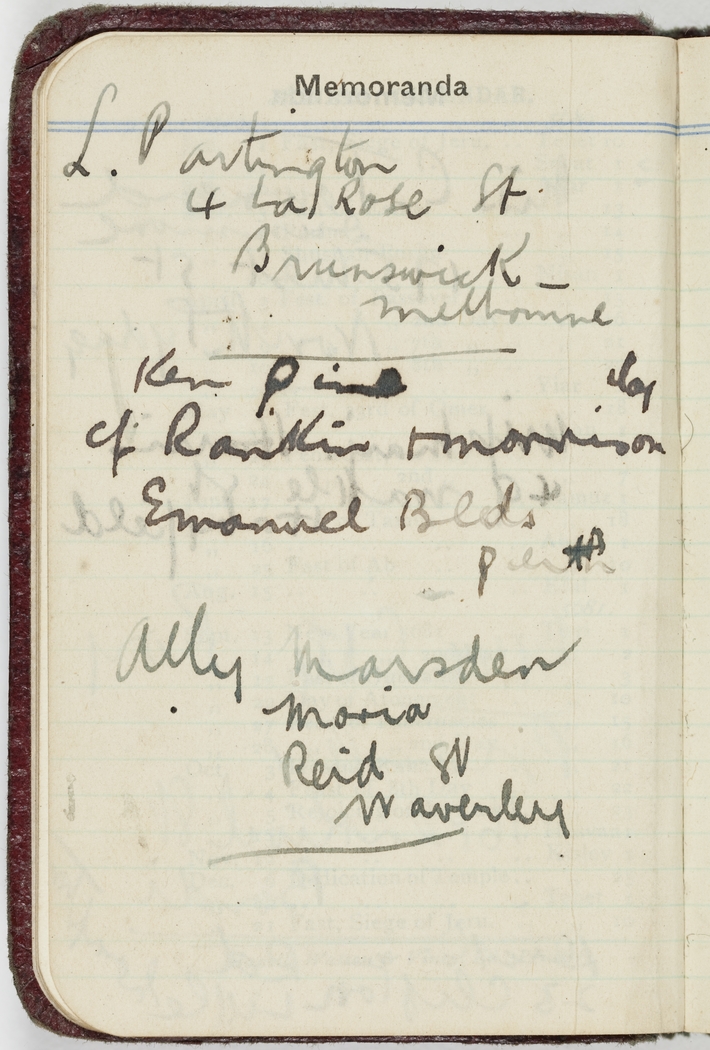 Memoranda
L. Partington
4 La Rose St
Brunswick –
Melbourne
Ken
c/ Rankin + Morrison
Emanuel Blds
Perth
Ally Marsden
Moria
Reid St
Waverley